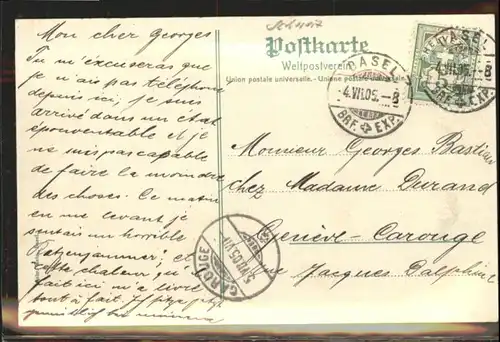 Schweiz
Postkarte
Weltpostverein
Union postale universelle. - Unione postale universale.
BASEL
4.VII.05.-8
BRF. EXP.
BASEL
4.VII.05.-8
BRF. EXP.
Mon cher Georges
Tu m'excuseras que
je n'ais pas téléphoné
depuis ici; je suis
arrivé dans un état
épouventable et je
ne suis pas capable
de faire la moindre
des choses. Ce matin
en me levant je
sentais un horrible
Katzenjammer; et
cette chaleur qu'il
fait ici m'a livré
tout à fait. Ich sitze jetzt
gemütlich bei
Monsieur Georges Bastian
chez Madame Durand
Genève-Carouge
rue Jacques Dalphin
CAROUGE
5.VII.05.